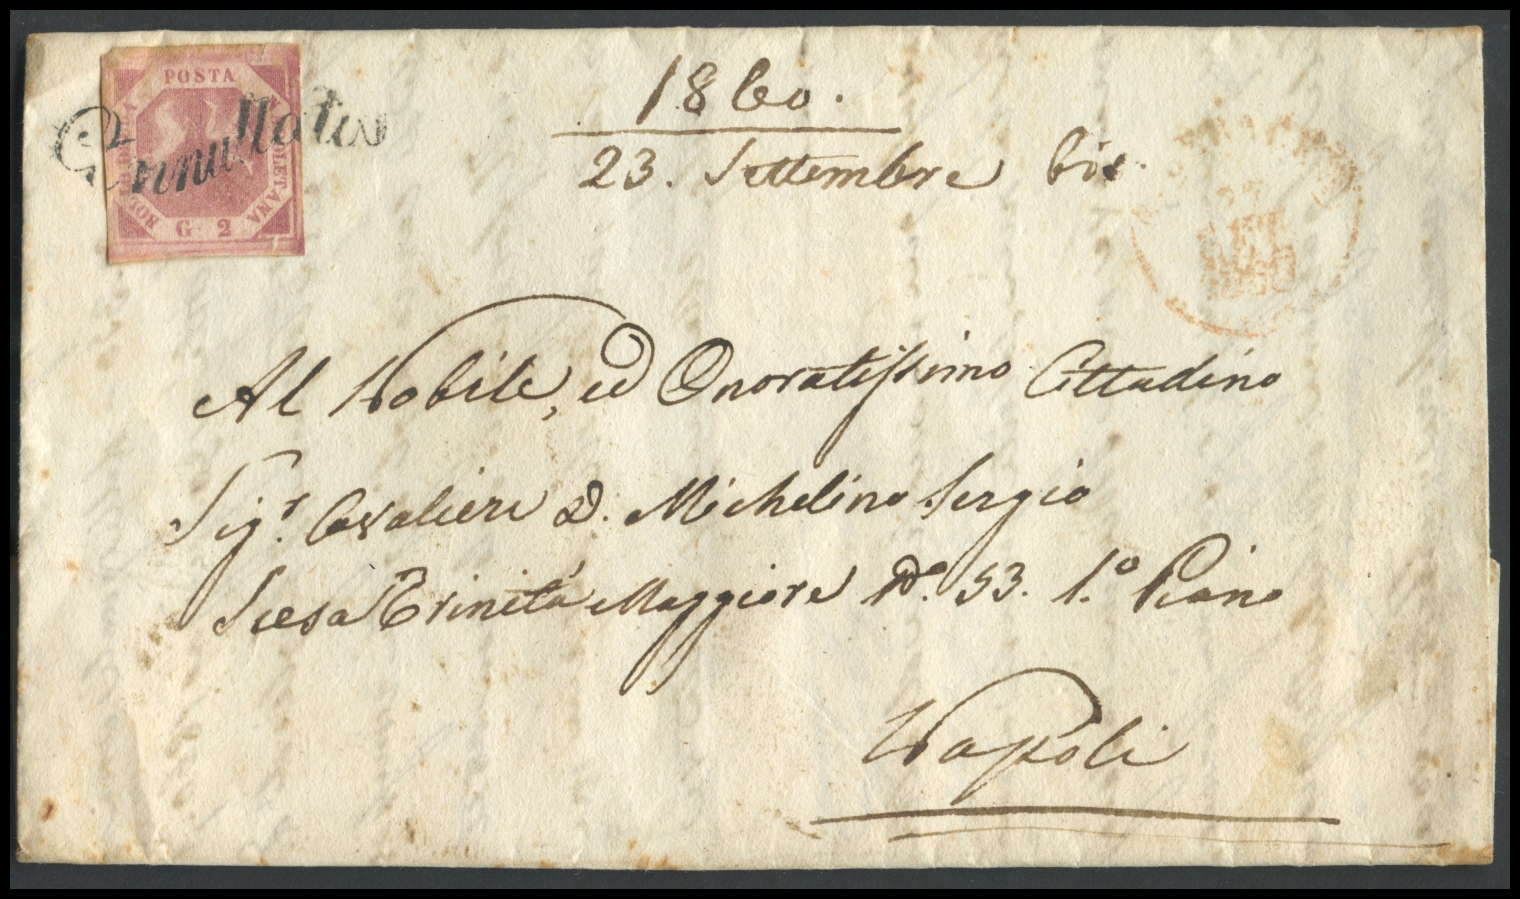 POSTA
NAPOLETANA
BOLLO DELLA
G. 2
Annullato
1860.
23. Settembre bis.
27
SET
1860
Al Nobile, ed Onoratissimo Cittadino
Sigr. Cavaliere D. Michelino Sergio
Scesa Trinità Maggiore No. 53. 1.o Piano
Napoli